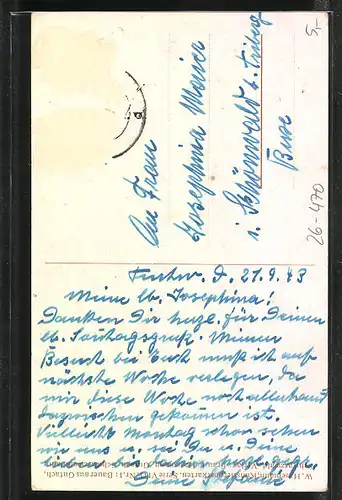 An Frau
Josephina Maier
i. Schönwald b. Triberg
5,-
26-470
Furtw. d. 21.9.43
Meine lb. Josephina!
Danken Dir herzl. für Deinen
lb. Sonntagsgruß. Meinen
Besuch bei Euch muß ich auf
nächste Woche verlegen, da
mir diese Woche noch allerhand
dazwischen gekommen ist.
Vielleicht Montag schon sehen
wir uns u. sei Du u. Deine
lieben bis dahin herzl. gegr.
Deine